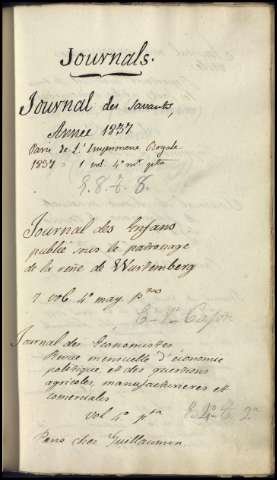 Journals.
Journal des savants,
Année 1837
Paris de L'Imprimerie Royale
1837 = 1 vol 4º
Journal des Enfans
publié sous le patronage
de la reine de Wurtemberg
vol 4º may
Journal des Economistes
Revue mensuelle d'économie
politique, et des questions
agricoles, manufacturieres et
comerciales
vol 4º
Paris chez Guillaumin